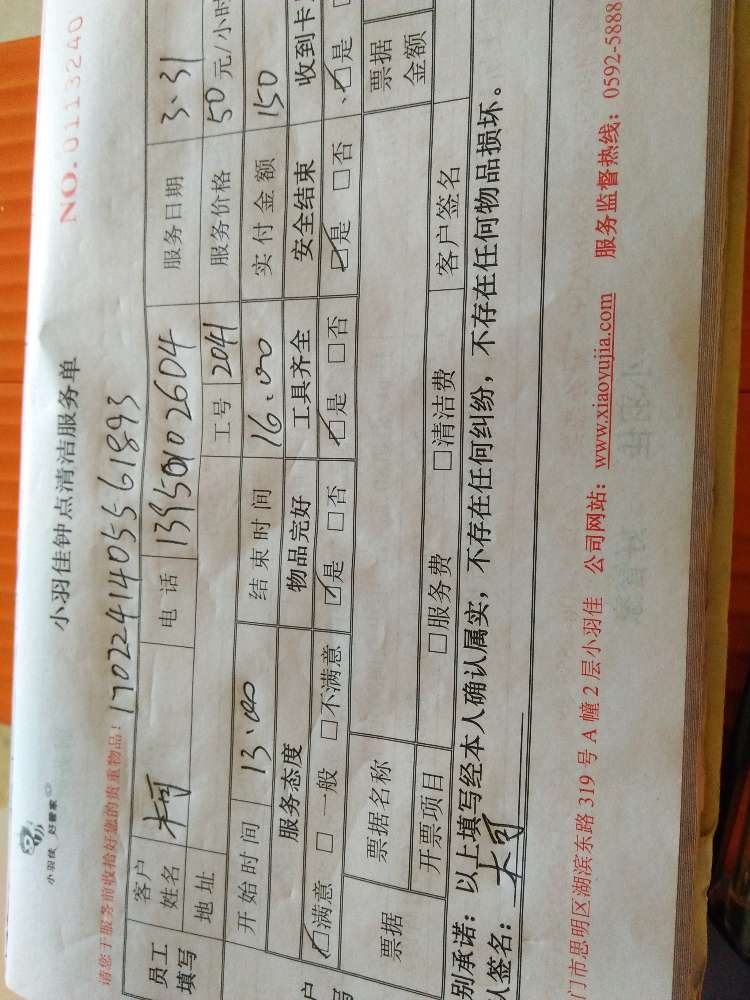 小羽佳 好管家
小羽佳钟点清洁服务单
NO.0113240
请您于服务前收拾好您的贵重物品!
17022414055561893
员工填写 客户姓名 木可 电话 13950102604 服务日期 3.31
地址 工号 2041 服务价格 50元/小时
开始时间 13:00 结束时间 16:00 实付金额 150
服务态度 物品完好 工具齐全 安全结束 收到卡
☑满意 □一般 □不满意 ☑是 □否 ☑是 □否 ☑是 □否 ☑是
票据 票据名称 票据金额
开票项目 □服务费 □清洁费 客户签名
别承诺:以上填写经本人确认属实,不存在任何纠纷,不存在任何物品损坏。
人签名: 木可
门市思明区湖滨东路319号A幢2层小羽佳 公司网站:www.xiaoyujia.com 服务监督热线:0592-5888